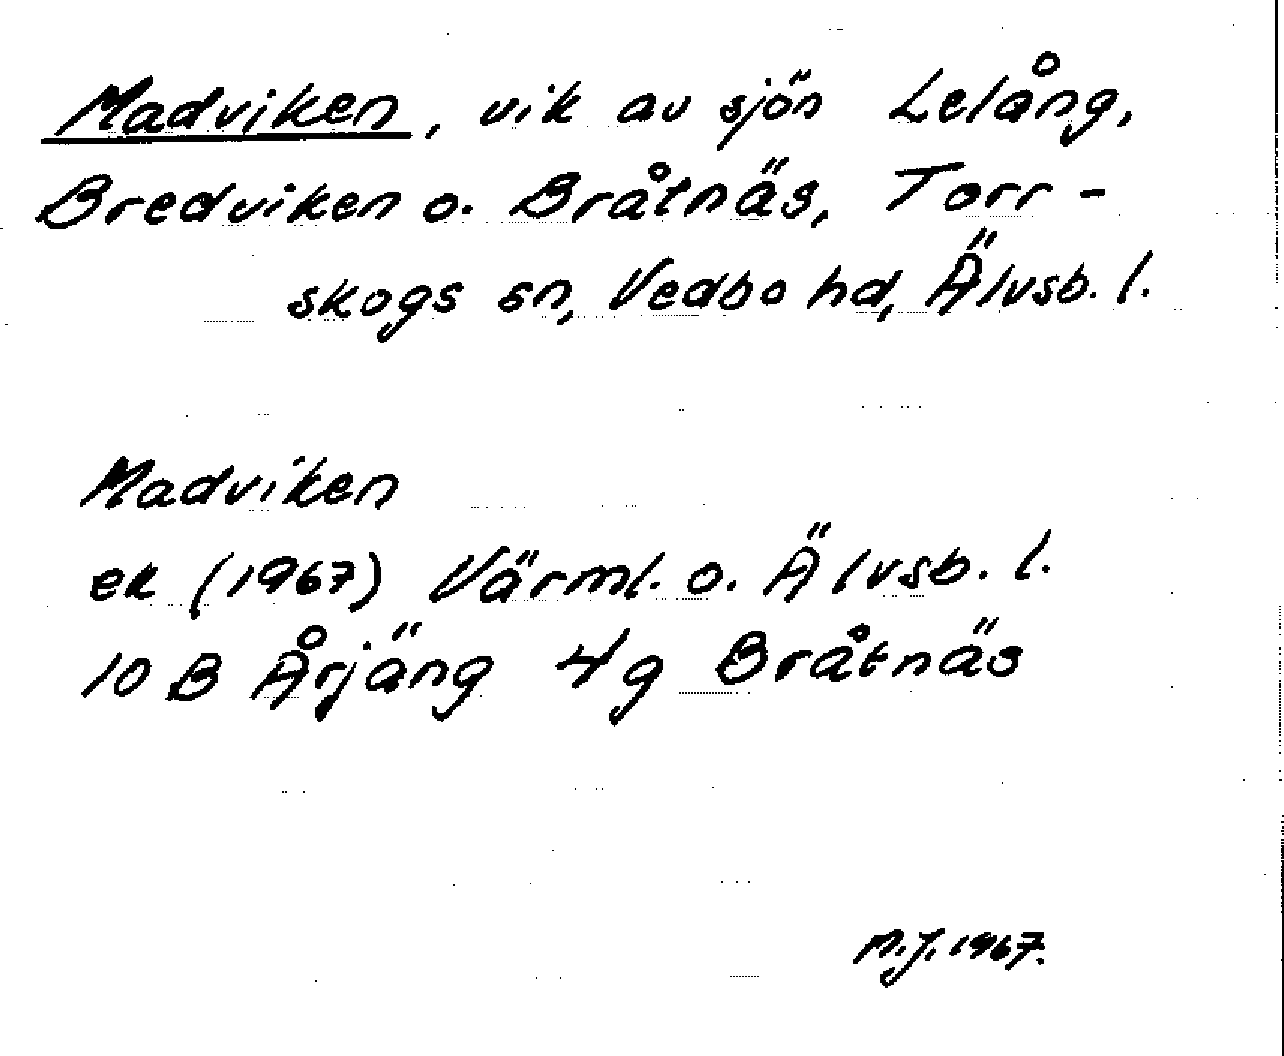 Madviken, vik av sjön Lelång,
Bredviken o. Bråtnäs, Torr-
skogs sn, Vedbo hd, Älvsb. l.
Madviken
ek (1967) Värml. o. Älvsb. l.
10 B Årjäng 4g Bråtnäs
M.J. 1967.